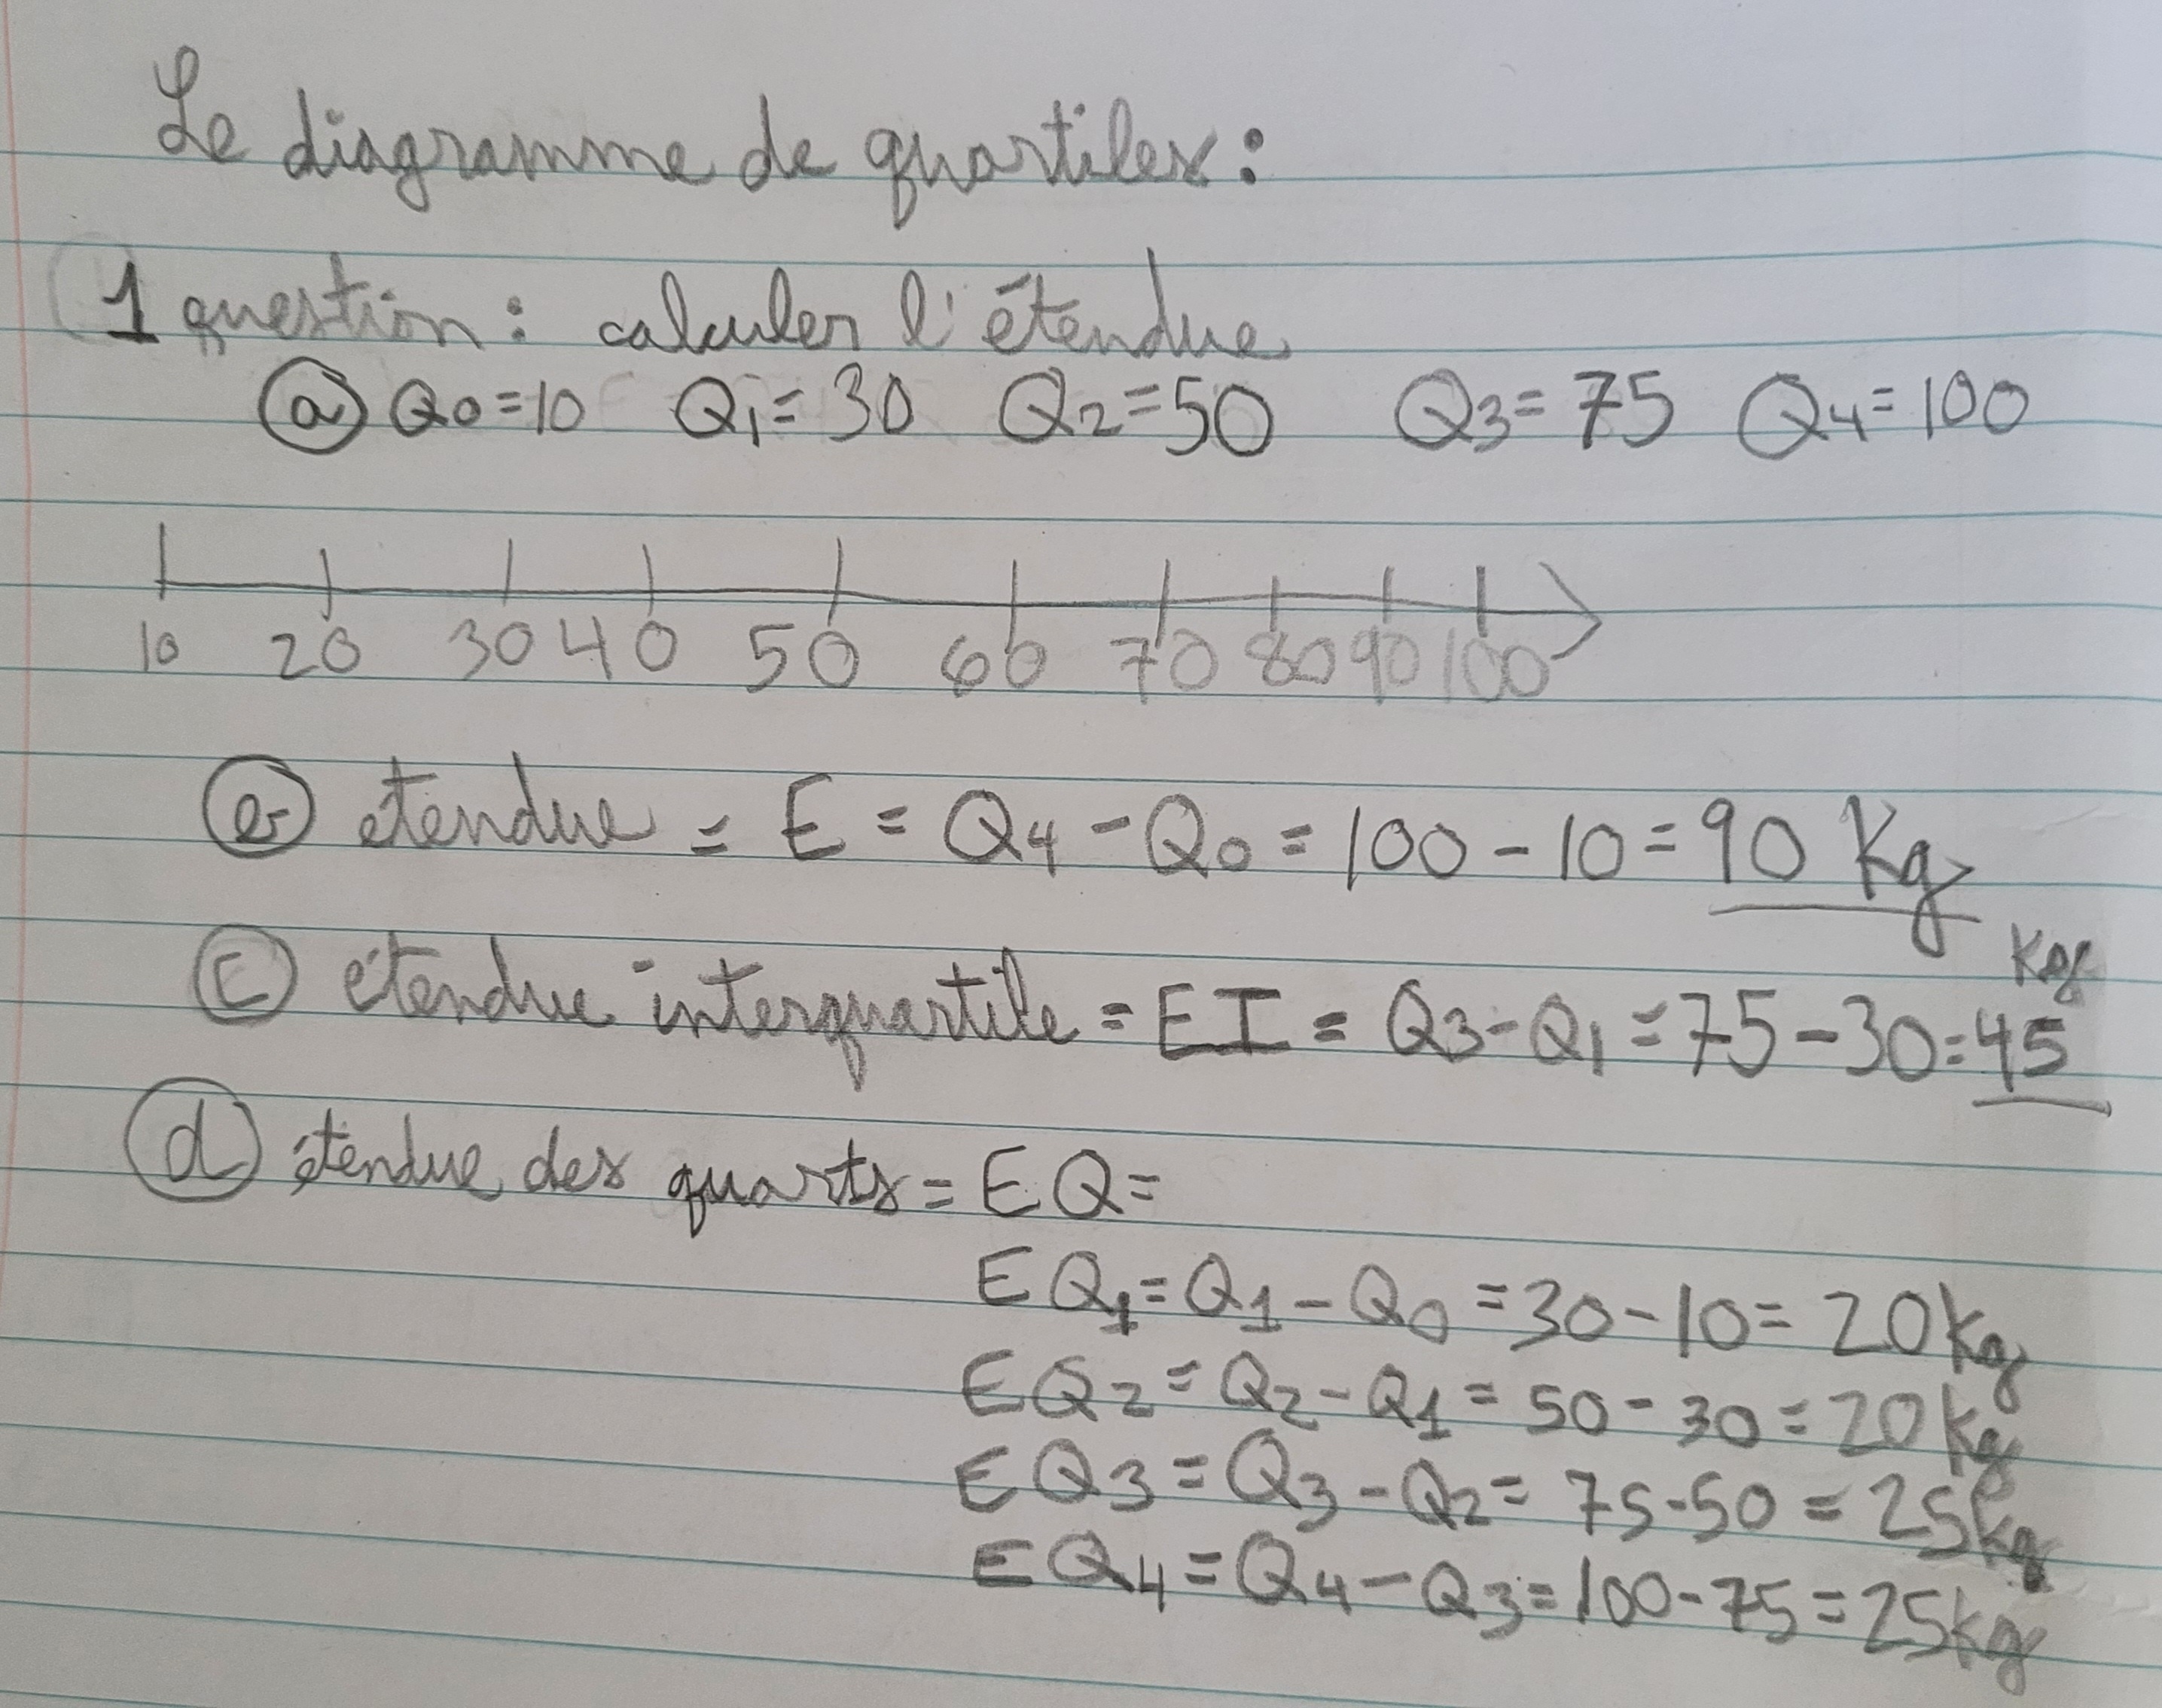 Le diagramme de quartiles :
1 question : calculer l'étendue
a Q0 = 10 Q1 = 30 Q2 = 50 Q3 = 75 Q4 = 100
10 20 30 40 50 60 70 80 90 100
b étendue = E = Q4 - Q0 = 100 - 10 = 90 Kg
Kg
c étendue interquartile = EI = Q3 - Q1 = 75 - 30 = 45
d étendue des quarts = EQ =
EQ1 = Q1 - Q0 = 30 - 10 = 20 kg
EQ2 = Q2 - Q1 = 50 - 30 = 20 kg
EQ3 = Q3 - Q2 = 75 - 50 = 25 kg
EQ4 = Q4 - Q3 = 100 - 75 = 25 kg